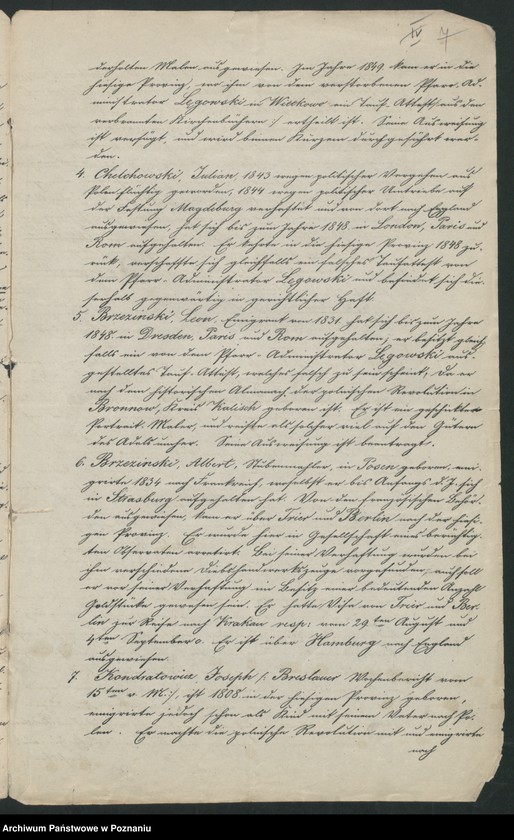 IV 7
derholten Malen ausgewiesen. Im Jahre 1849 kam er in die
hiesige Provinz, wo ihm von dem verstorbenen Pfarr-Ad-
ministrator Legowski in Wilkowo ein Tauf-Attest /: aus den
verbrannten Kirchenbüchern :/ ertheilt ist. Seine Ausweisung
ist verfügt, und wird binnen Kurzem durchgeführt wer-
den.
4. Chelchowski, Julian, 1843 wegen politischer Vergehen aus
Polen flüchtig geworden, 1844 wegen politischer Umtriebe auf
der Festung Magdeburg verhaftet und von dort nach England
ausgewiesen, hat sich bis zum Jahre 1848 in London, Paris und
Rom aufgehalten. Er kehrte in die hiesige Provinz 1848 zu-
rück, verschaffte sich gleichfalls ein falsches Taufattest von
dem Pfarr-Administrator Legowski und befindet sich die-
serhalb gegenwärtig in gerichtlicher Haft.
5. Brzezinski, Leon, Emigrant von 1831 hat sich bis zum Jahre
1848 in Dresden, Paris und Rom aufgehalten, er besitzt gleich-
falls ein von dem Pfarr-Administrator Legowski aus-
gestelltes Tauf-Attest, welches falsch zu sein scheint, da er
nach dem historischen Almanach der polnischen Revolution in
Bronnow, Kreis Kalisch geboren ist. Er ist ein geschickter
Portrait-Maler, und reiste als solcher viel auf den Gütern
des Adels umher. Seine Ausweisung ist beantragt.
6. Brzezinski, Albert, Stubenmahler, in Posen geboren, emi-
grirte 1834 nach Frankreich, woselbst er bis Anfangs d. J. sich
in Strasburg aufgehalten hat. Von den französischen Behör-
den ausgewiesen, kam er über Trier und Berlin nach der hiesi-
gen Provinz. Er wurde hier in Gesellschaft eines berüchtig-
ten Observaten arretirt. Bei seiner Verhaftung wurden bei
ihm verschiedene Diebshandwerkszeuge vorgefunden, auch soll
er vor seiner Verhaftung im Besitz einer bedeutenden Anzahl
Goldstücke gewesen sein. Er hatte Visa von Trier und Ber-
lin zur Reise nach Krakau resp: vom 29ten August und
4ten September c. Er ist über Hamburg nach England
ausgewiesen.
7. Kondratowicz, Joseph /: Breslauer Wochenbericht vom
15ten v. M: :/, ist 1808 in der hiesigen Provinz geboren,
emigrirte jedoch schon als Kind mit seinem Vater nach Po-
len. Er machte die polnische Revolution mit und emigrirte
nach
Archiwum Państwowe w Poznaniu